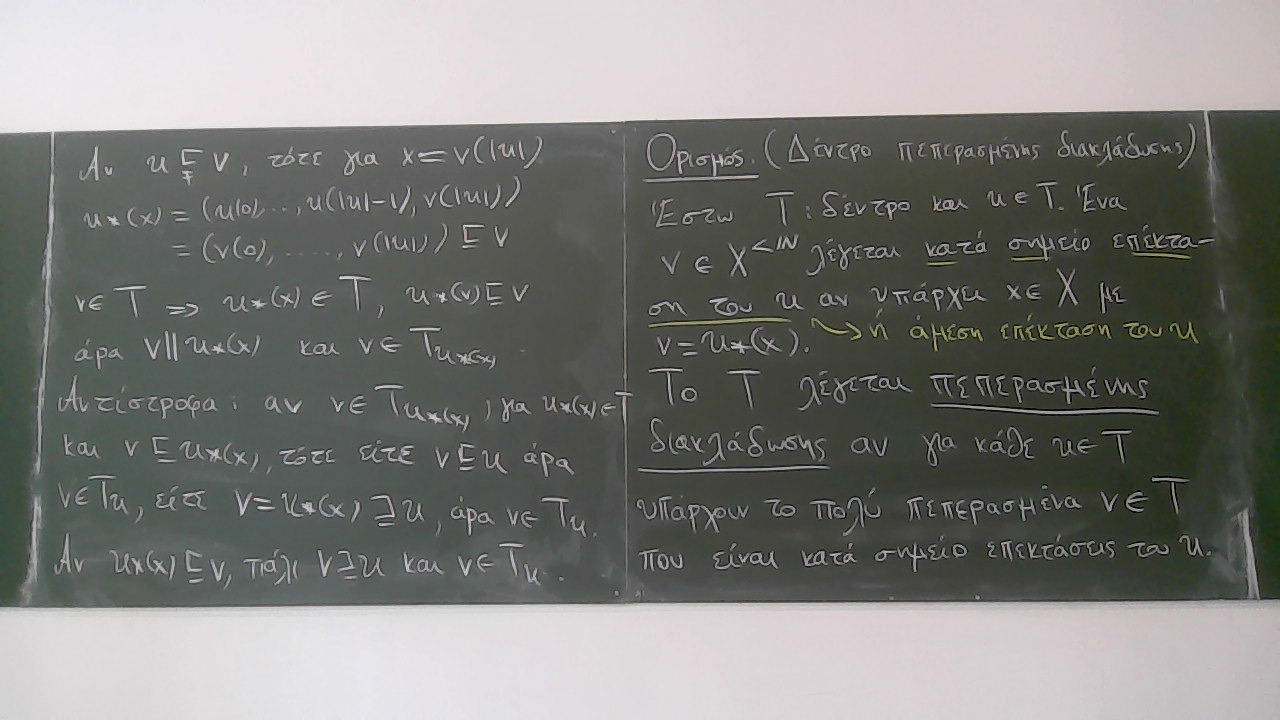 Αν u ⊊ v, τότε για x = v(|u|)
u*(x) = (u(0),..., u(|u|-1), v(|u|))
= (v(0), ....., v(|u|)) ⊑ v
v ∈ T ⇒ u*(x) ∈ T, u*(v) ⊑ v
άρα v || u*(x) και v ∈ T_{u*(x)}.
Αντίστροφα: αν v ∈ T_{u*(x)}, για u*(x) ∈ T
και v ⊑ u*(x), τότε είτε v ⊑ u άρα
v ∈ T_u, είτε v = u*(x) ⊒ u, άρα v ∈ T_u.
Αν u*(x) ⊑ v, πάλι v ⊒ u και v ∈ T_u.
Ορισμός. (Δέντρο πεπερασμένης διακλάδωσης)
Έστω T: δέντρο και u ∈ T. Ένα
v ∈ X^{<ℕ} λέγεται κατά σημείο επέκτα-
ση του u αν υπάρχει x ∈ X με
v = u*(x). → ή άμεση επέκταση του u
Το T λέγεται πεπερασμένης
διακλάδωσης αν για κάθε u ∈ T
υπάρχουν το πολύ πεπερασμένα v ∈ T
που είναι κατά σημείο επεκτάσεις του u.